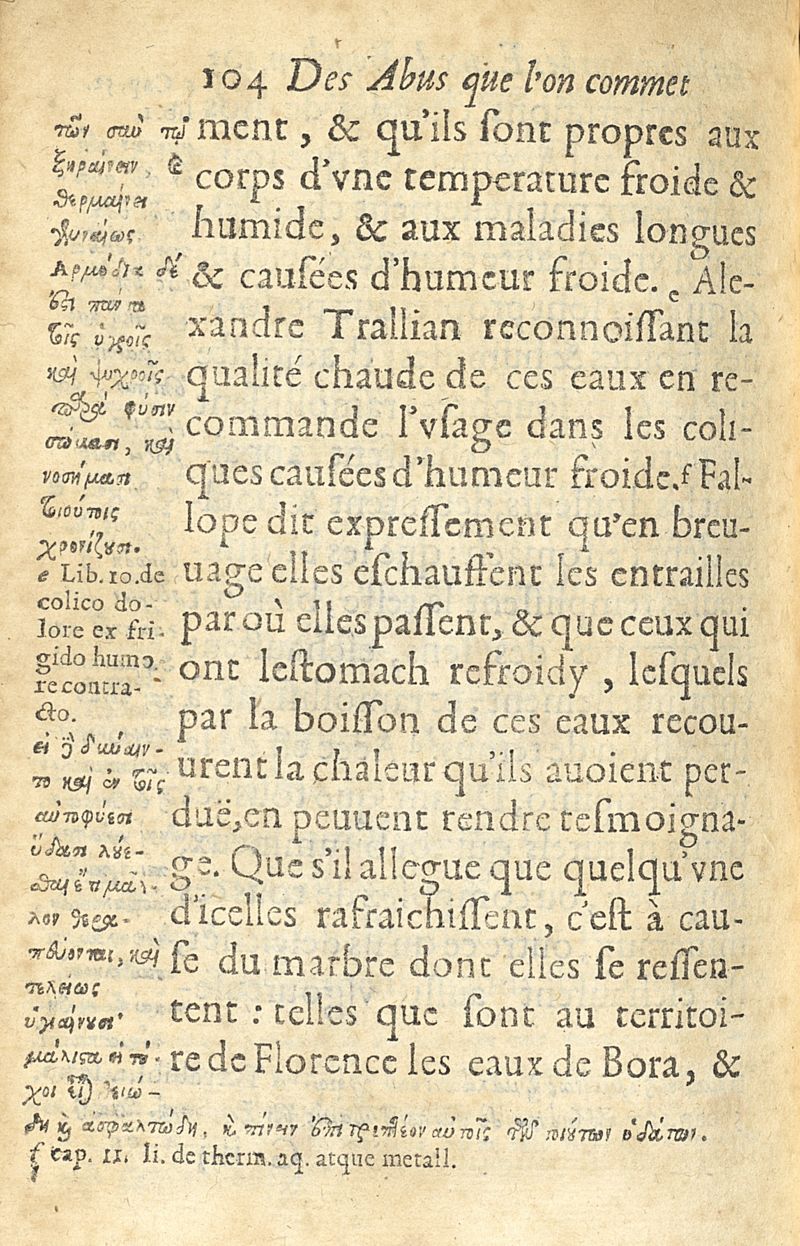 104 Des Abus que l'on commet
ment, & qu'ils ſont propres aux
corps d'vne temperature froide &
humide, & aux maladies longues
& cauſées d'humeur froide. e Ale-
xandre Trallian reconnoiſſant la
qualité chaude de ces eaux en re-
commande l'vſage dans les coli-
ques cauſées d'humeur froide. f Fal-
lope dit expreſſement qu'en breu-
uage elles eſchauffent les entrailles
par où elles paſſent, & que ceux qui
ont leſtomach refroidy, leſquels
par la boiſſon de ces eaux recou-
urent la chaleur qu'ils auoient per-
duë, en peuuent rendre teſmoigna-
ge. Que s'il allegue que quelqu'vne
d'icelles rafraichiſſent, c'eſt à cau-
ſe du marbre dont elles ſe reſſen-
tent : telles que ſont au territoi-
re de Florence les eaux de Bora, &
τῶν σὺν τῷ
ξηραίνειν, &
θερμαίνει
δυνάμεως
Ἁρμόδια δέ
ἐστι πάντα
τοῖς ὑγροῖς
καὶ ψυχροῖς
φύσιν
καὶ
νοσήμασι
χρονίζουσι.
e Lib. 10. de
colico do-
lore ex fri-
gido humo
re contra-
cto.
εἰ δὲ
καὶ ἐν τοῖς
αὐτοφύεσι
ὕδασι λούε-
σθαι μᾶλ-
λον θερα-
πεύονται, καὶ
τελείως
ὑγιαίνουσι
μάλιστα εἰ τύ-
χοι
ἀσφαλτώδη, πίνειν ἐπιτρεπτέον αὐτοῖς τῶν τοιούτων ὑδάτων.
f Cap. 11. li. de therm. aq. atque metall.